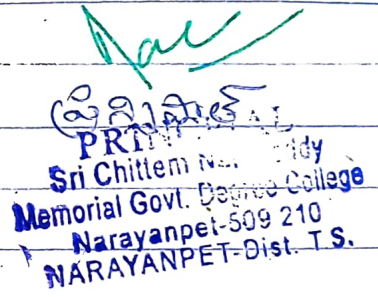 ప్రిన్సిపాల్
PRIN AL
Sri Chittem N ddy
Memorial Govt. Degree College
Narayanpet-509 210
NARAYANPET-Dist. T.S.